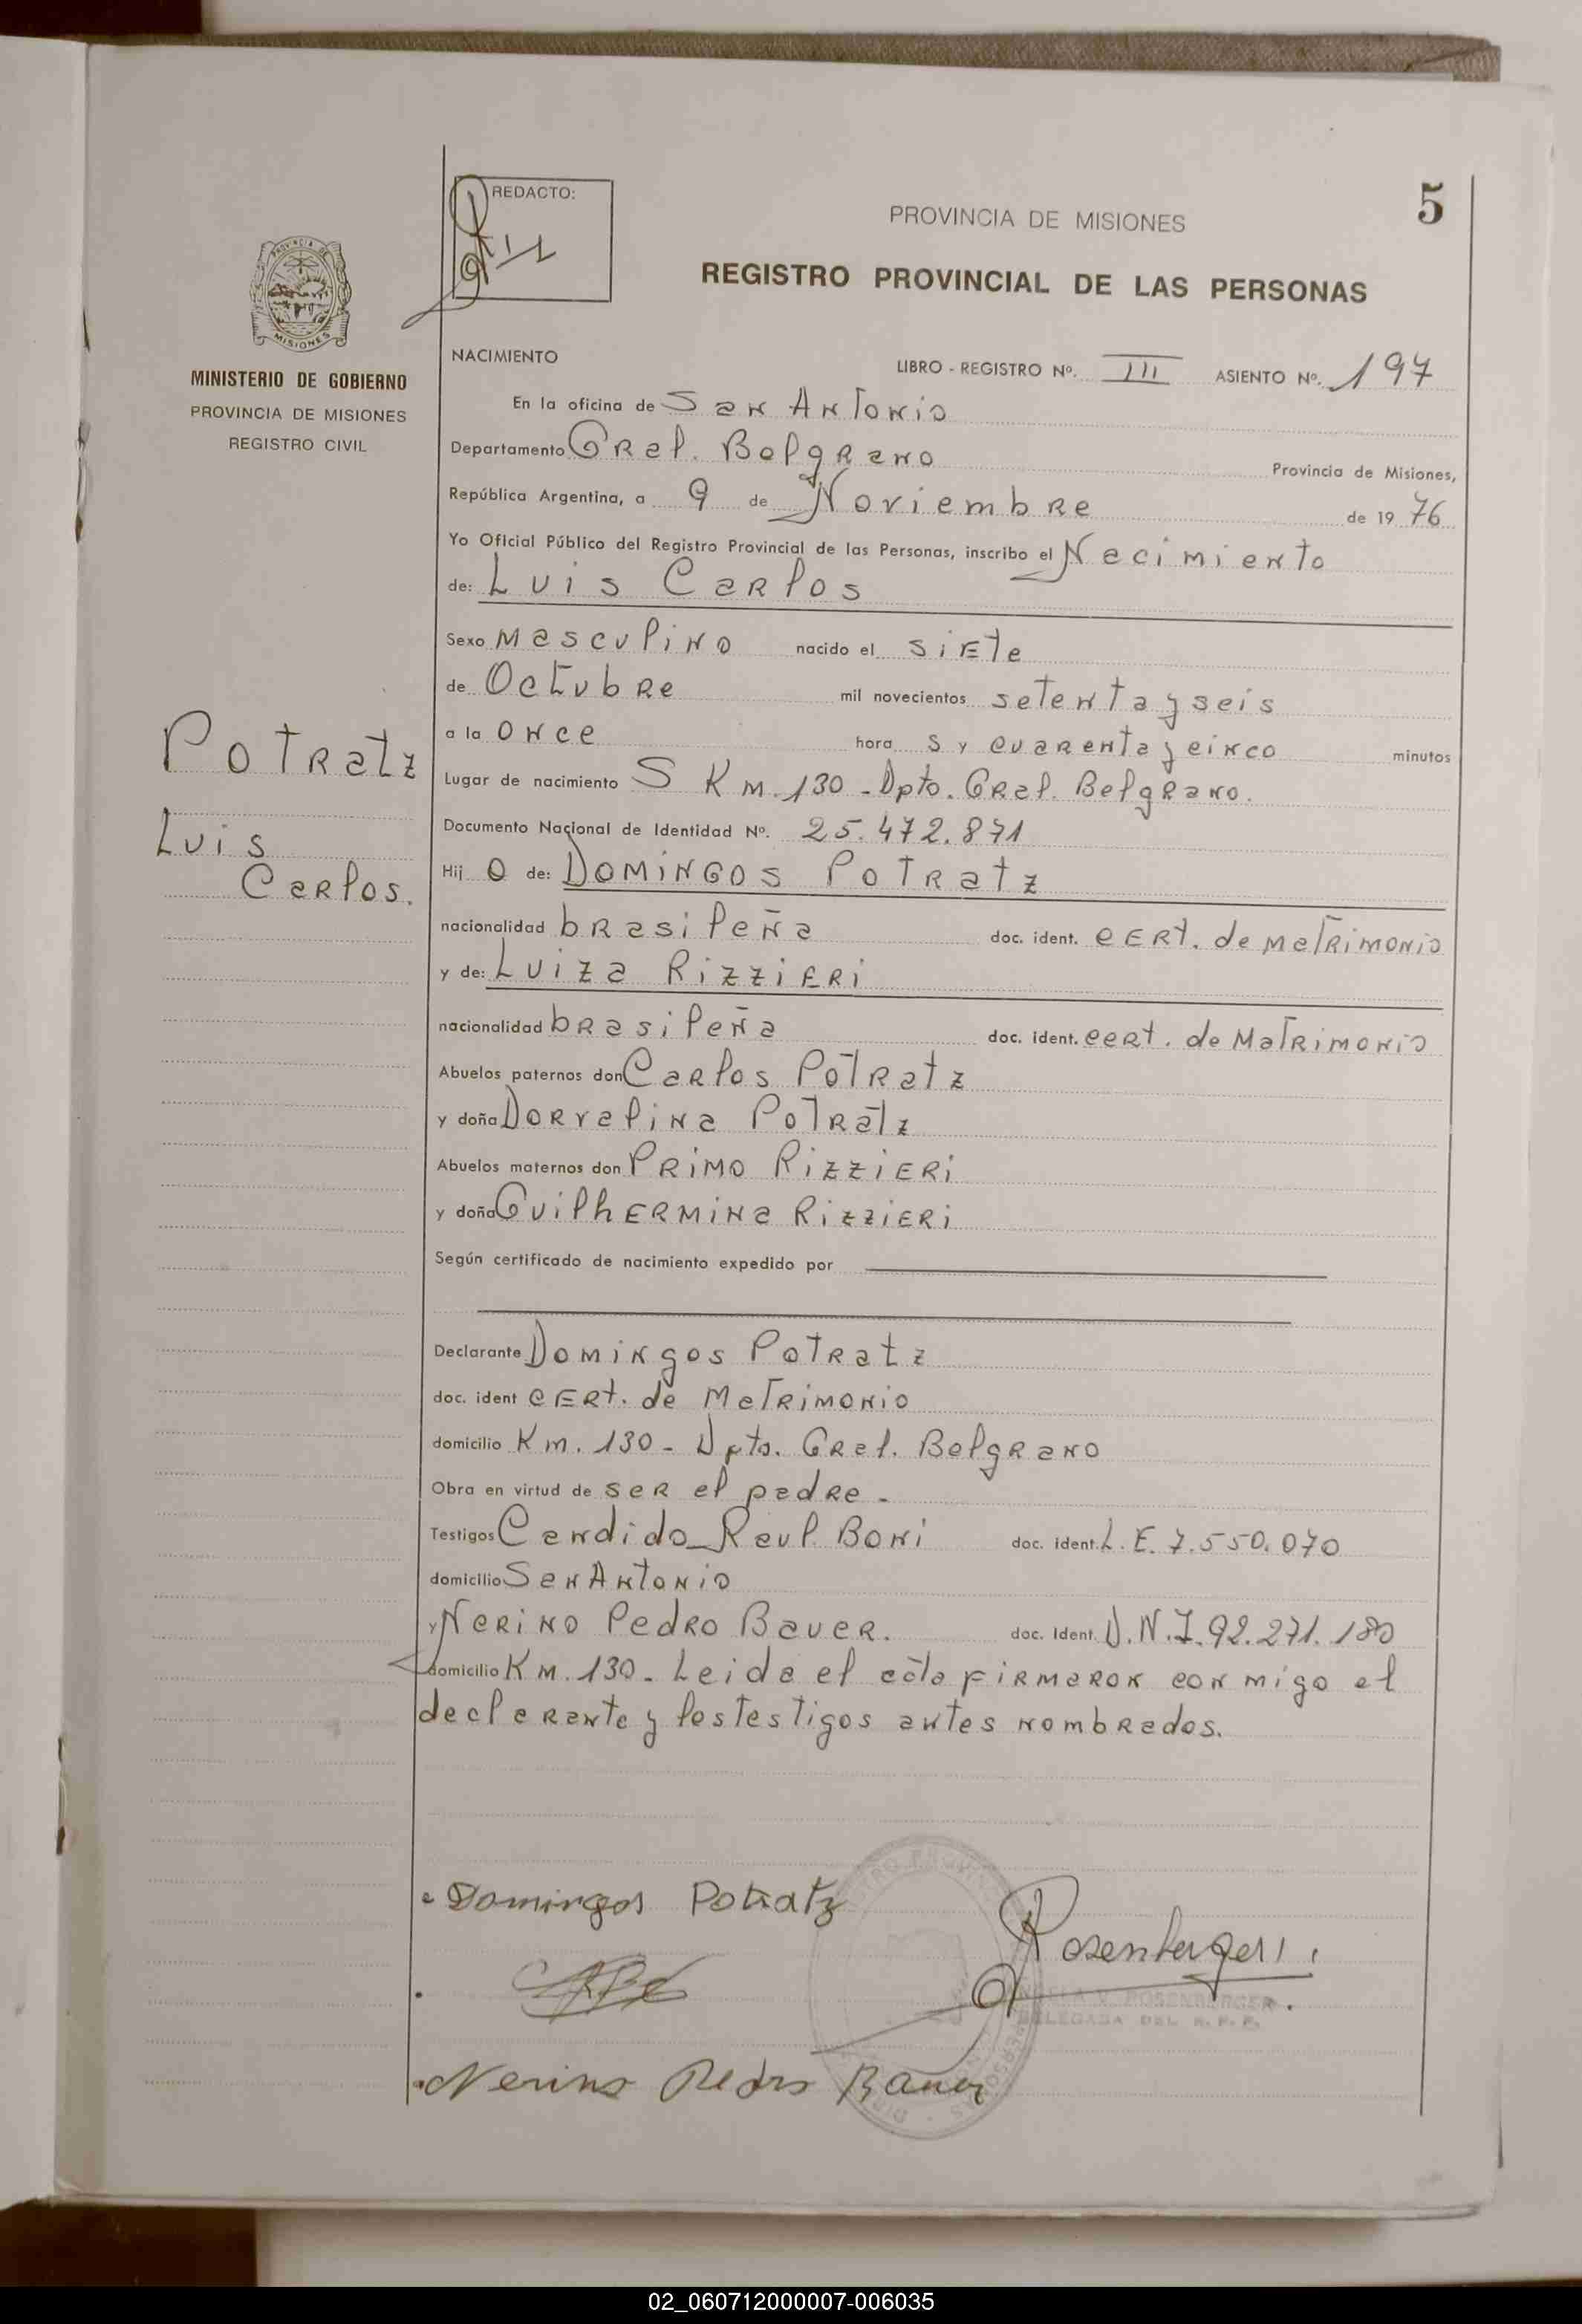 REDACTO:
5
PROVINCIA DE MISIONES
REGISTRO PROVINCIAL DE LAS PERSONAS
MISIONES
MINISTERIO DE GOBIERNO
PROVINCIA DE MISIONES
REGISTRO CIVIL
Potratz
Luis
Carlos.
NACIMIENTO LIBRO - REGISTRO Nº. III ASIENTO Nº. 197
En la oficina de San Antonio
Departamento Gral. Belgrano Provincia de Misiones,
República Argentina, a 9 de Noviembre de 19 76
Yo Oficial Público del Registro Provincial de las Personas, inscribo el Nacimiento
de: Luis Carlos
Sexo masculino nacido el siete
de Octubre mil novecientos setenta y seis
a la once hora s y cuarenta y cinco minutos
Lugar de nacimiento S Km. 130 - Dpto. Gral. Belgrano.
Documento Nacional de Identidad Nº. 25.472.871
Hij o de: Domingos Potratz
nacionalidad brasileña doc. ident. cert. de matrimonio
y de: Luiza Rizzieri
nacionalidad brasileña doc. ident. cert. de Matrimonio
Abuelos paternos don Carlos Potratz
y doña Dorvalina Potratz
Abuelos maternos don Primo Rizzieri
y doña Guilhermina Rizzieri
Según certificado de nacimiento expedido por
Declarante Domingos Potratz
doc. ident cert. de Matrimonio
domicilio Km. 130 - Dpto. Gral. Belgrano
Obra en virtud de ser el padre -
Testigos Candido Raul Boni doc. ident. L.E. 7.550.070
domicilio San Antonio
y Nerino Pedro Bauer. doc. Ident. D.N.I. 92.271.180
domicilio Km. 130 - Leida el acta firmaron con migo el
declarante y los testigos antes nombrados.
Domingos Potratz
Rosenberger
ROSENBERGER
DELEGADA DEL R. P. P.
Nerino Pedro Bauer
02_060712000007-006035